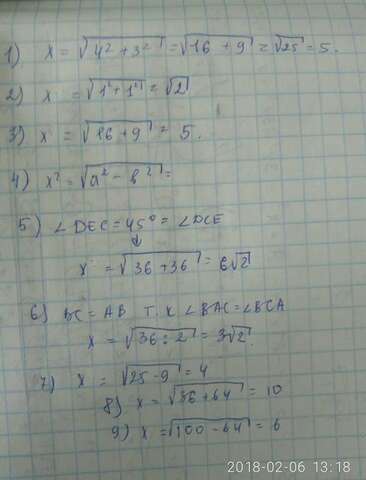 1) x = √4² + 3² = √16 + 9 = √25 = 5.
2) x = √1² + 1² = √2
3) x = √16 + 9 = 5.
4) x² = √a² - b² =
5) ∠DEC = 45° = ∠DCE
↓
x = √36 + 36 = 6√2
6) BC = AB т.к ∠BAC = ∠BCA
x = √36 : 2 = 3√2.
7) x = √25 - 9 = 4
8) x = √36 + 64 = 10
9) x = √100 - 64 = 6
2018-02-06 13:18